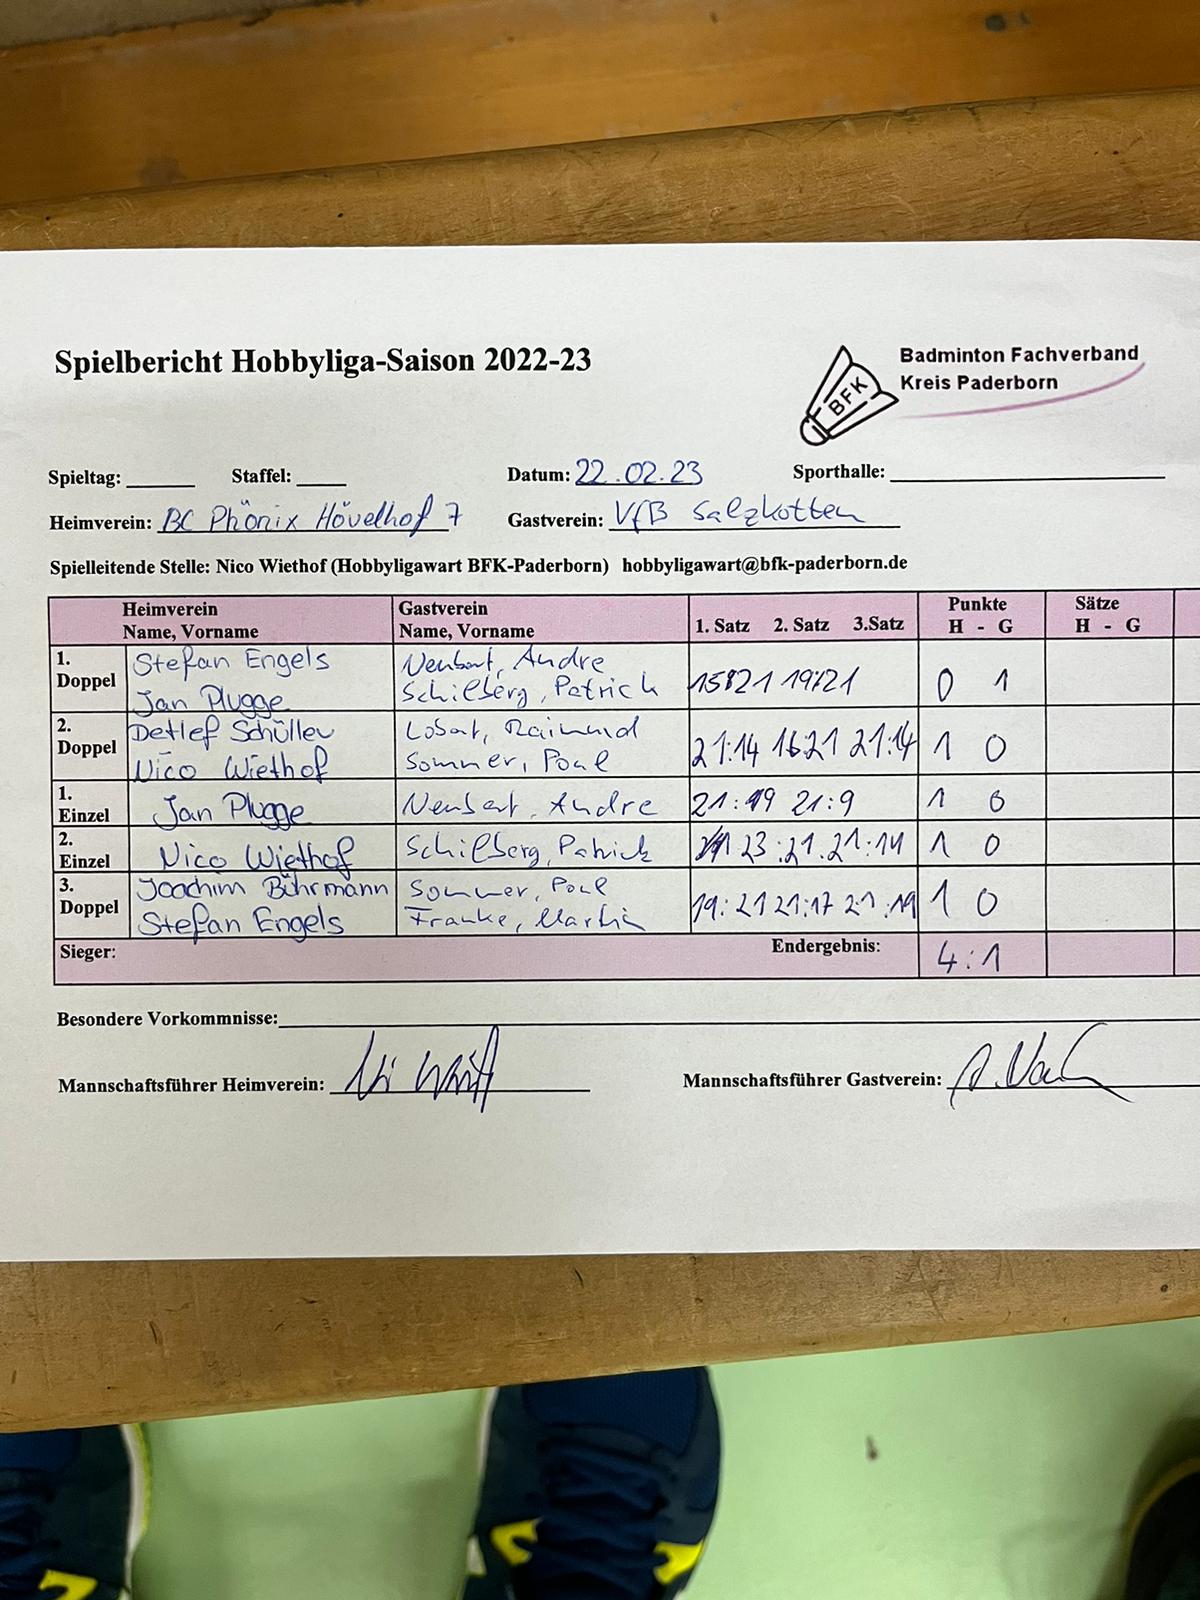 Spielbericht Hobbyliga-Saison 2022-23
Badminton Fachverband
Kreis Paderborn
BFK
Spieltag: Staffel: Datum: 22.02.23 Sporthalle:
Heimverein: BC Phönix Hövelhof 7 Gastverein: VfB Salzkotten
Spielleitende Stelle: Nico Wiethof (Hobbyligawart BFK-Paderborn) hobbyligawart@bfk-paderborn.de
Heimverein Gastverein Punkte Sätze
Name, Vorname Name, Vorname 1. Satz 2. Satz 3.Satz H - G H - G
1. Doppel Stefan Engels Neubert, Andre 15:21 19:21 0 1
Jan Plugge Schilberg, Patrick
2. Doppel Detlef Schüller Raimund 21:14 16:21 21:14 1 0
Nico Wiethof Sommer, Paul
1. Einzel Jan Plugge Neubert, Andre 21:19 21:9 1 0
2. Einzel Nico Wiethof Schilberg, Patrick 23:21. 21:14 1 0
3. Doppel Joachim Bührmann Sommer, Paul 19:21 21:17 21:19 1 0
Stefan Engels Franke, Martin
Sieger: Endergebnis: 4:1
Besondere Vorkommnisse:
Mannschaftsführer Heimverein: Mannschaftsführer Gastverein: